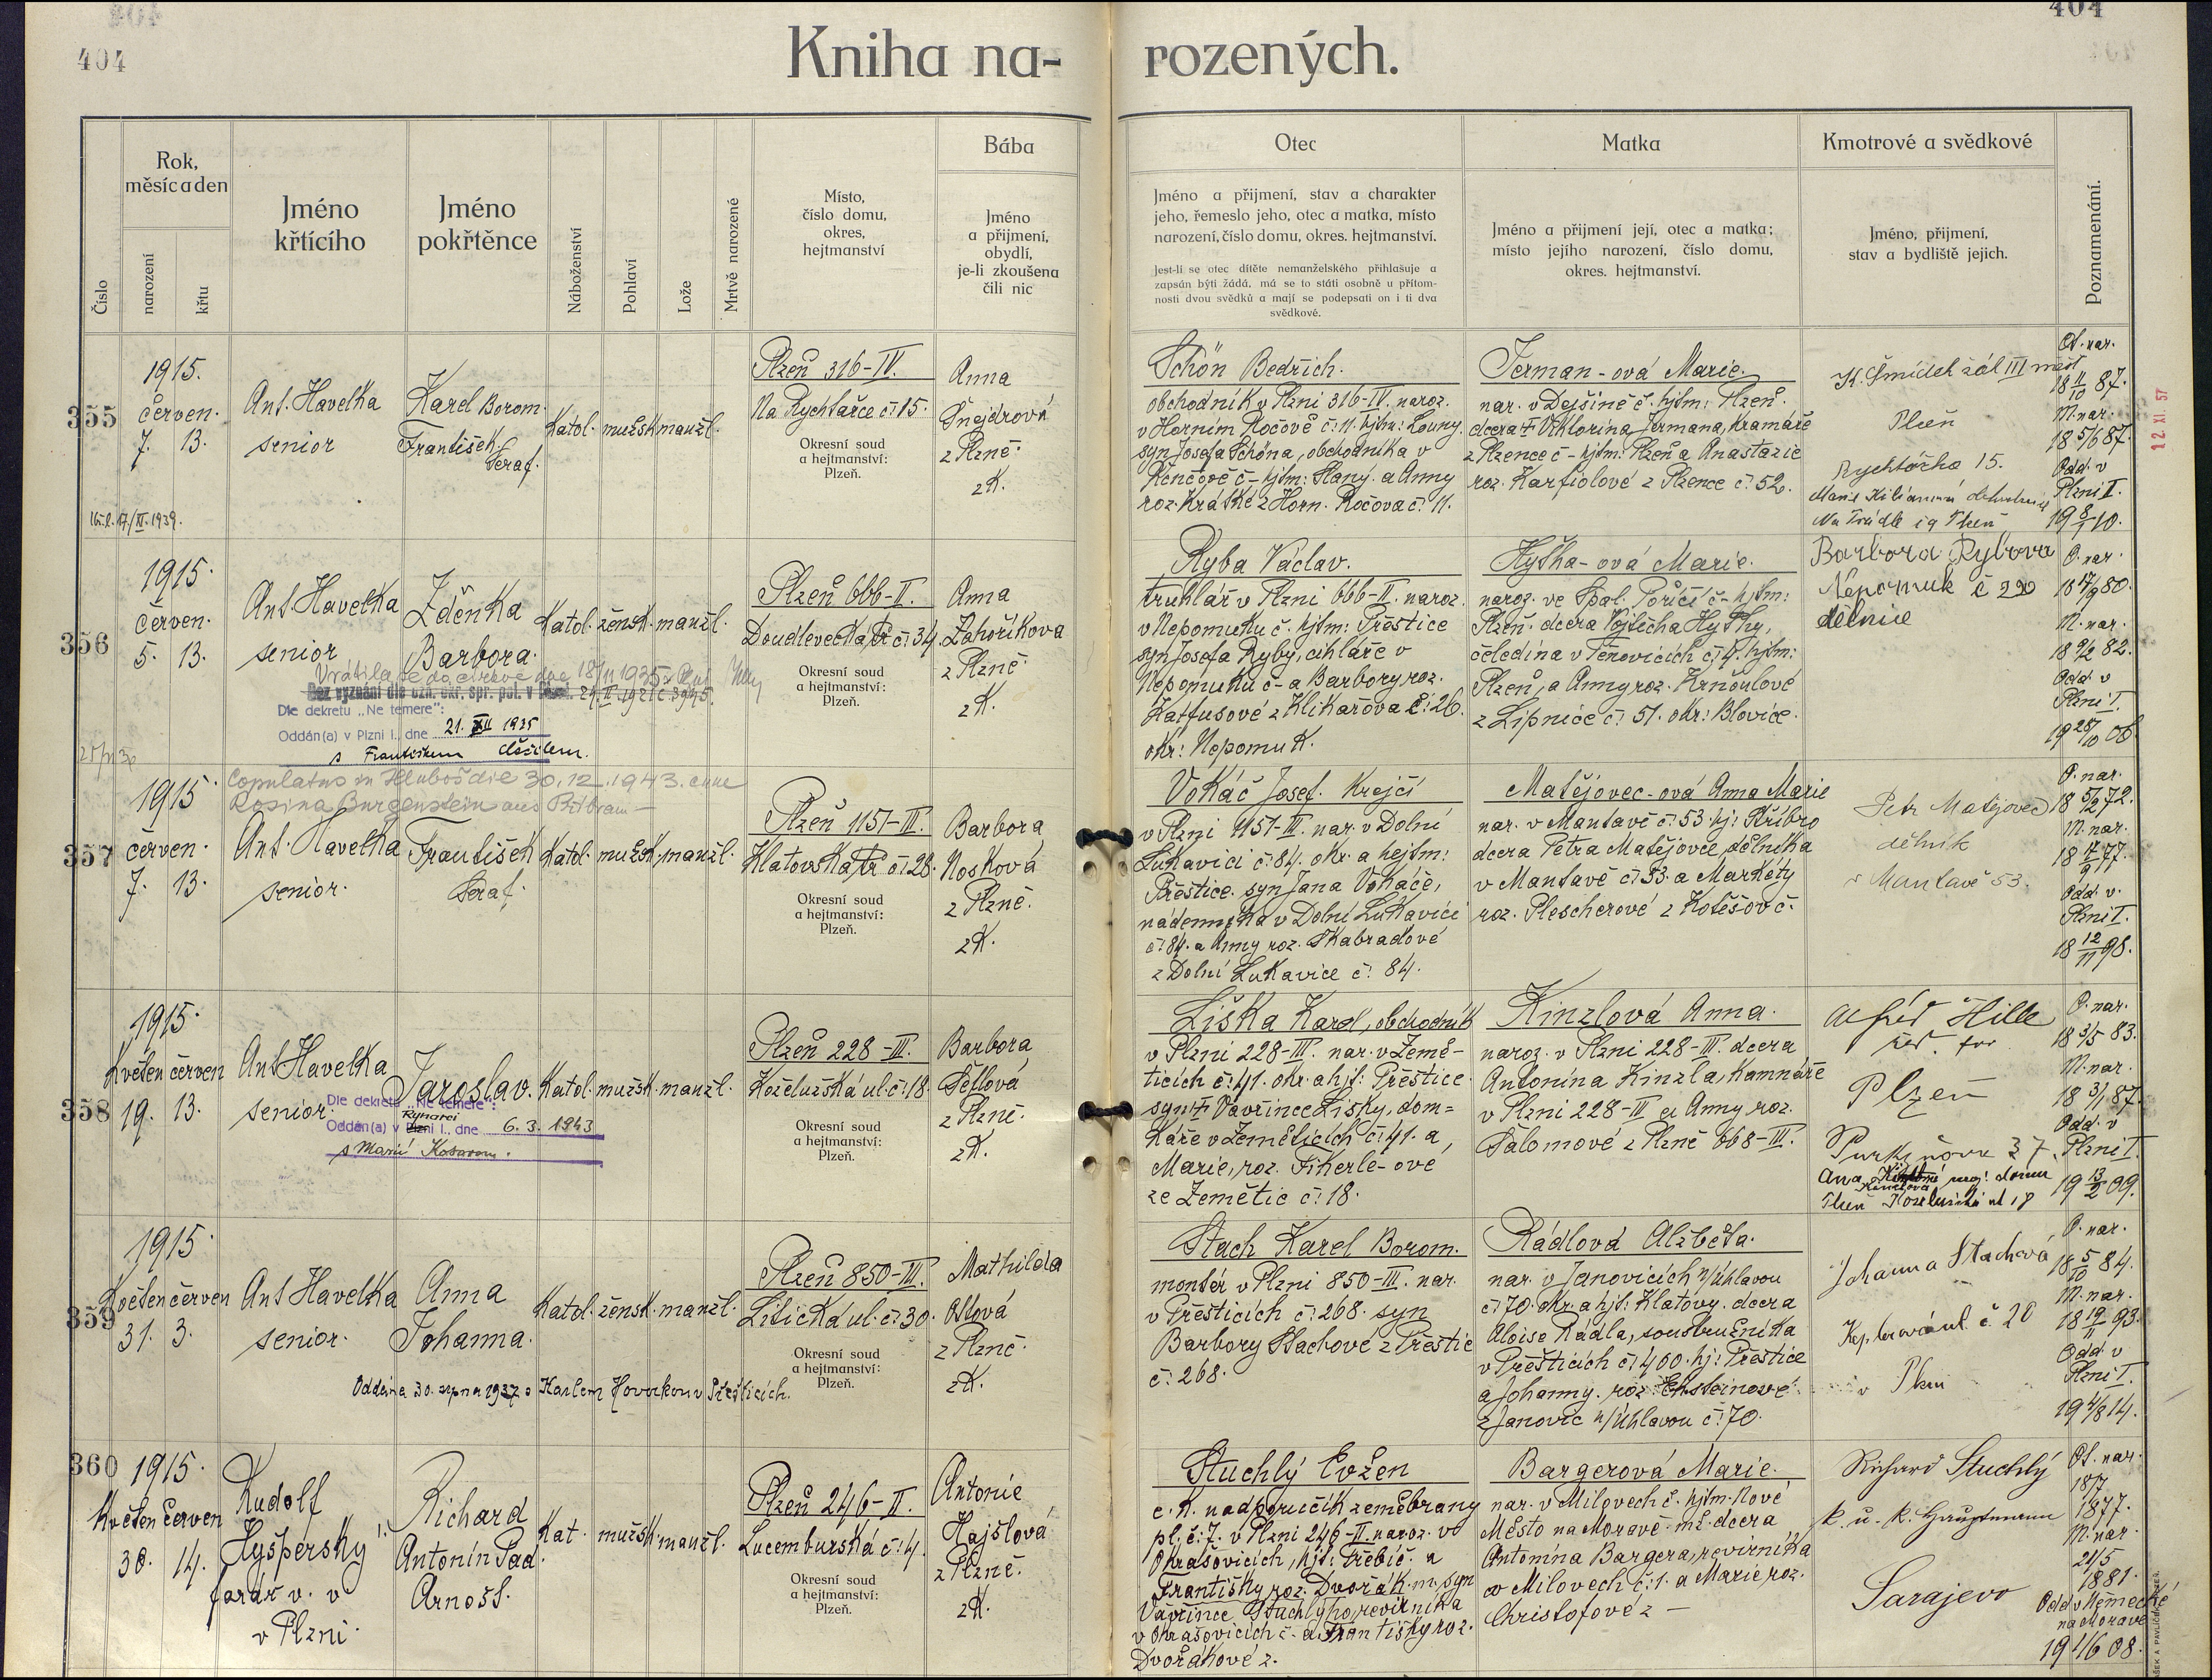 404
404
Kniha na-
rozených.
Číslo
Rok,
měsíc a den
narození
křtu
Jméno
křtícího
Jméno
pokřtěnce
Náboženství
Pohlaví
Lože
Mrtvě narozené
Místo,
číslo domu,
okres,
hejtmanství
Bába
Jméno
a přijmení,
obydlí,
je-li zkoušena
čili nic
Otec
Jméno a přijmení, stav a charakter
jeho, řemeslo jeho, otec a matka, místo
narození, číslo domu, okres. hejtmanství.
Jest-li se otec dítěte nemanželského přihlašuje a
zapsán býti žádá, má se to státi osobně u přítom-
nosti dvou svědků a mají se podepsati on i ti dva
svědkové.
Matka
Jméno a přijmení její, otec a matka;
místo jejího narození, číslo domu,
okres. hejtmanství.
Kmotrové a svědkové
Jméno, přijmení,
stav a bydliště jejich.
Poznamenání.
355
1915.
červen.
7. 13.
Ant. Havelka
senior
Karel Borom.
František
Seraf.
Katol. mužsk. manžl.
Plzeň 316-IV.
Na Rychtářce č. 15.
Okresní soud
a hejtmanství:
Plzeň.
Anna
Šnejdrová
z Plzně
zk.
Schön Bedřich.
obchodník v Plzni 316-IV. naroz.
v Horním Ročově č. 11. hjtm: Louny.
syn Josefa Schöna, obchodníka v
hjtm: Slaný. a Anny
roz. Krátké z Horn. Ročova č. 11.
Jerman-ová Marie.
nar. v Dejšině č. hjtm: Plzeň.
dcera † Viktorina Jermana, kramáře
z Plzence č - hjtm: Plzeň a Anastazie
roz. Karfiolové z Plzence č. 52.
Plzeň
Rychtářka 15.
Ot. nar.
18 11/10 87.
M. nar.
18 5/6 87.
Odd. v
Plzni I.
19 8/1 10.
12. XI. 57
356
1915.
červen.
5. 13.
Ant. Havelka
senior
Zděnka
Barbora.
Katol. žensk. manžl.
Plzeň 666-II.
Doudlevecká tř. č. 34.
Okresní soud
a hejtmanství:
Plzeň.
Anna
Zahoříkova
z Plzně
zk.
Vrátila se do církve dne 18/11 1935
Bez vyznání dle ozn. okr. spr. pol. v
Dle dekretu „Ne temere":
Oddán(a) v Plzni I., dne 21. XII 1935
s Františkem
Ryba Václav.
truhlář v Plzni 666-II. naroz.
v Nepomuku č. hjtm: Přeštice
syn Josefa Ryby, cihláře v
Nepomuku č - a Barbory roz.
Hatfusové z Klikařova č. 26.
okr: Nepomuk.
Hyťha-ová Marie.
naroz. ve Spál. Poříčí č - hjtm:
Plzeň. dcera Vojtěcha Hyťhy,
čeledína v Těnovicích č. 4. hjtm:
Plzeň, a Anny roz. Krňoulové
z Lipnice č. 51. okr: Blovice.
Barbora Rybova
Nepomuk č 290
dělnice
O. nar.
18 17/9 80.
M. nar.
18 9/2 82.
Odd. v
Plzni I.
19 28/10 06
357
1915
červen.
7. 13.
Copulatus in Hluboš die 30.12.1943. cum
Rosina Burgenstein aus Příbram
Ant. Havelka
senior.
František
Seraf.
Katol. mužsk. manžl.
Plzeň 1151-III.
Klatovská tř. č. 28.
Okresní soud
a hejtmanství:
Plzeň.
Barbora
Nosková
z Plzně.
zk.
Vokáč Josef. Krejčí
v Plzni 1151-III. nar. v Dolní
Lukavici č. 84. okr. a hejtm:
Přeštice. syn Jana Vokáče,
nádenníka v Dolní Lukavici
č. 84. a Anny roz. Škabradové
z Dolní Lukavice č. 84.
Matějovec-ová Anna Marie
nar. v Mantavě č. 53. hj: Stříbro
dcera Petra Matějovce, dělníka
v Mantavě č. 53. a Markéty
roz. Plescherové z Kotěšov č.
Petr Matějovec
dělník
v Mantavě 53.
O. nar.
18 5/2 72.
M. nar.
18 17/9 77.
Odd. v.
Plzni I.
18 12/11 98.
358
1915.
Květen červen
19. 13.
Ant. Havelka
senior.
Jaroslav.
Katol. mužsk. manžl.
Plzeň 228-III.
Koželužská ul. č. 18.
Okresní soud
a hejtmanství:
Plzeň.
Barbora
Šetlová
z Plzně.
zk.
Dle dekretu „Ne temere":
Oddán(a) v Plzni I., dne 6. 3. 1943
s Marií
Liška Karel, obchodník
v Plzni 228-III. nar. v Země-
ticích č. 41. okr. a hjt: Přeštice.
syn † Vavřince Lišky, dom=
káře v Zeměticích č. 41. a
Marie, roz. Fikerle-ové
ze Zemětic č. 18.
Kinzlová Anna.
naroz. v Plzni 228-III. dcera
Antonína Kinzla, kamnáře
v Plzni 228-III a Anny roz.
Šalomové z Plzně 668-III.
Alfréd Hille
Plzeň
Purkyňova 37.
O. nar.
18 3/5 83.
M. nar.
18 3/1 87.
Odd. v
Plzni I.
19 13/2 09.
359
1915.
Květen červen
31. 3.
Ant Havelka
senior.
Anna
Johanna.
Katol. žensk. manžl.
Plzeň 850-III.
Litická ul. č. 30.
Okresní soud
a hejtmanství:
Plzeň.
Mathilda
Ottová
z Plzně.
zk.
Oddána 30. srpna 1937 s Karlem Hovorkou v Přešticích.
Stach Karel Borom.
montér v Plzni 850-III. nar.
v Přešticích č. 268. syn
Barbory Stachové z Přeštic
č. 268.
Rádlová Alžběta.
nar. v Janovicích n/Úhlavou
č. 70. okr. a hjt: Klatovy. dcera
Aloise Rádla, soustružníka
v Přešticích č. 400. hj: Přeštice
a Johanny. roz. Eksteinové
z Janovic n/Úhlavou č. 70.
Johanna Stachová
č 20
v Plzni
O. nar.
18 5/10 84.
M. nar.
18 19/11 93.
Odd. v
Plzni I.
19 4/8 14.
360
1915.
Květen červen
30. 14.
Rudolf
Hyšperský
farář v. v
v Plzni.
Richard
Antonín Pad.
Arnošt.
Kat. mužsk. manžl.
Plzeň 246-II.
Lucemburská č. 4.
Okresní soud
a hejtmanství:
Plzeň.
Antonie
Hajšlová
z Plzně.
zk.
Stuchlý Evžen
c. k. nadporučík zeměbrany
pl. č. 7. v Plzni 246-II. naroz. v
Okrašovicích, hjt: Třebíč. a
Františky roz. Dvořák. m. syn
Vavřince Stuchlýho, revírníka
v Okrašovicích č. a Františky roz.
Dvořákové z.
Bargerová Marie.
nar. v Milovech č. hjtm. Nové
Město na Moravě. mž. dcera
Antonína Bargera, revírníka
v Milovech č. 1. a Marie, roz.
Christofové z —
Richard Stuchlý
k. u. k. Hauptmann
Sarajevo
Ot. nar.
18/7
1877.
M. nar
21/5
1881.
Odd v Německé
na Moravě
19 1/6 08.